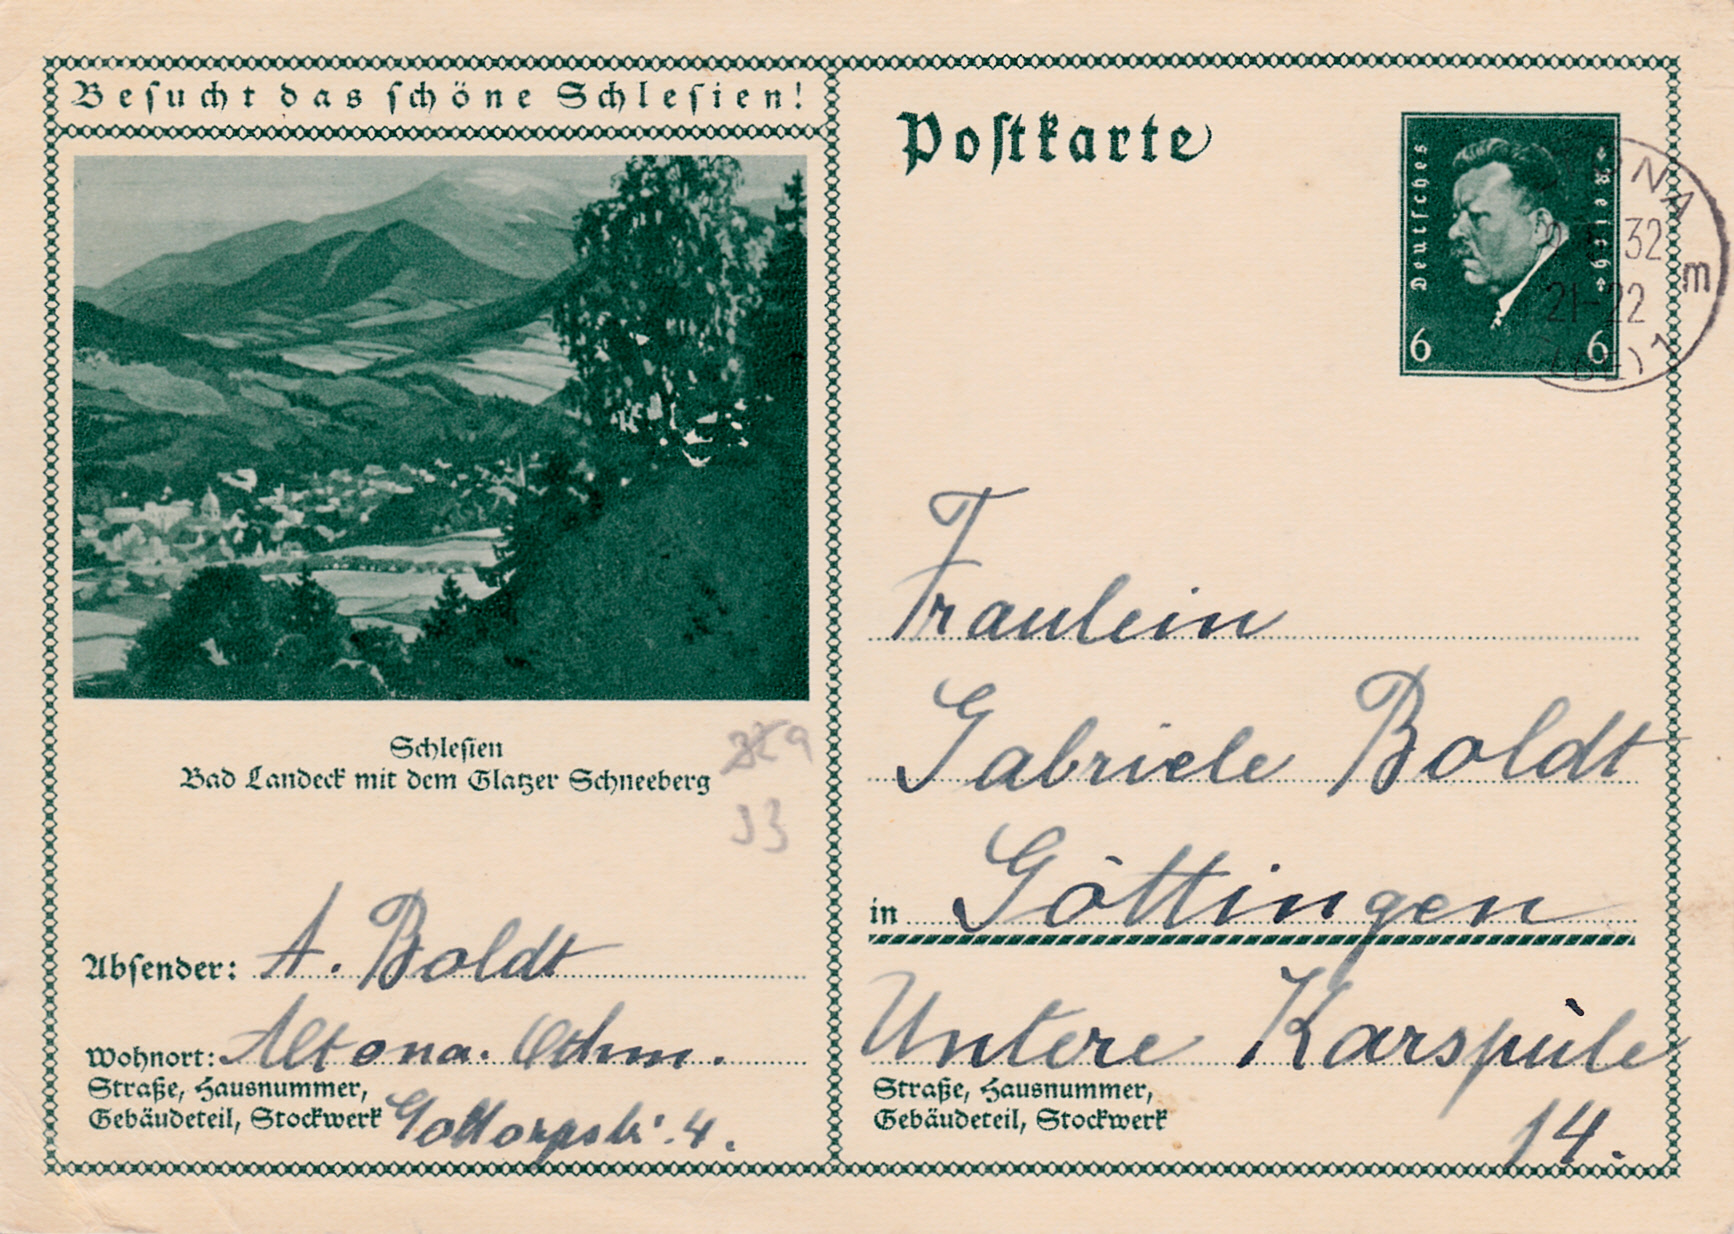 Besucht das schöne Schlesien!
Postkarte
Deutsches
Reich
6 6
32
21-22
m
Schlesien
Bad Landeck mit dem Glatzer Schneeberg
33
Fräulein
Gabriele Boldt
in Göttingen
Untere Karspüle
14.
Straße, Hausnummer,
Gebäudeteil, Stockwerk
Absender: A. Boldt
Wohnort: Altona. Othm.
Straße, Hausnummer,
Gebäudeteil, Stockwerk Gottorpstr. 4.